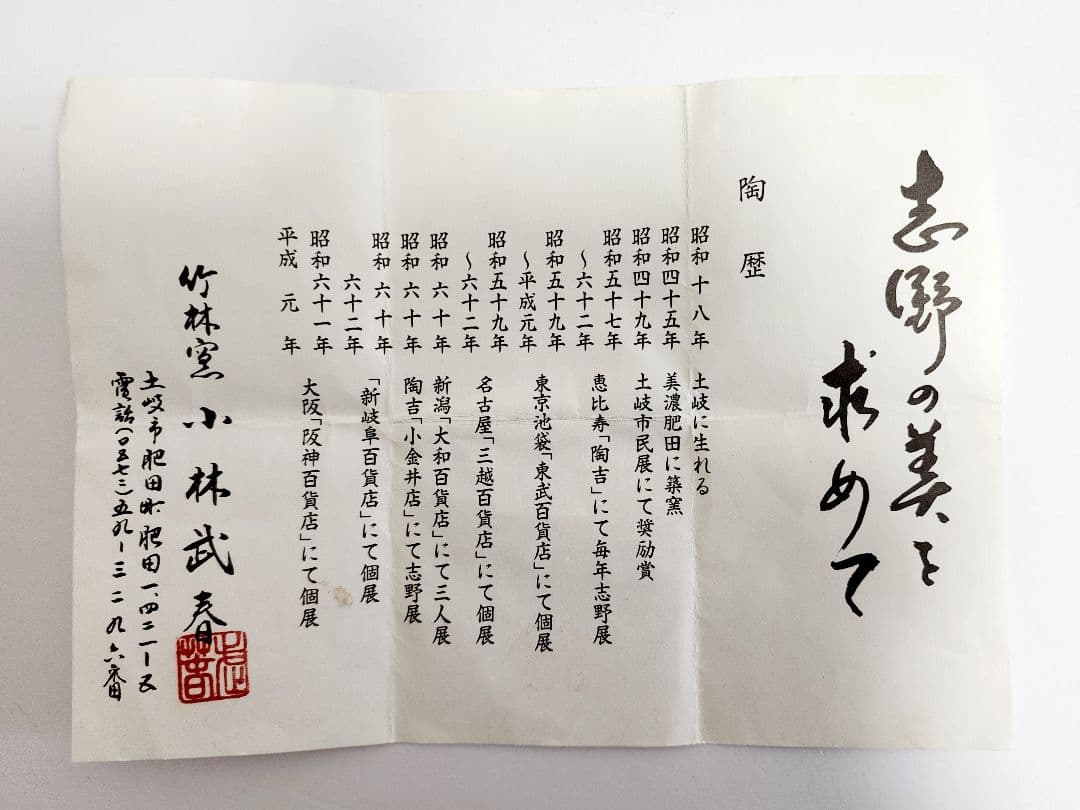 志野の美を
求めて
陶歴
昭和十八年 土岐に生れる
昭和四十五年 美濃肥田に築窯
昭和四十九年 土岐市民展にて奨励賞
昭和五十七年
～六十二年 恵比寿「陶吉」にて毎年志野展
昭和五十九年
～平成元年 東京池袋「東武百貨店」にて個展
昭和五十九年
～六十二年 名古屋「三越百貨店」にて個展
昭和六十年 新潟「大和百貨店」にて三人展
昭和六十年 陶吉「小金井店」にて志野展
昭和六十年
六十二年 「新岐阜百貨店」にて個展
昭和六十一年
平成元年 大阪「阪神百貨店」にて個展
竹林窯 小林武春
土岐市肥田町肥田一、四二一ー五
電話(〇五七二)五九ー三二九六番